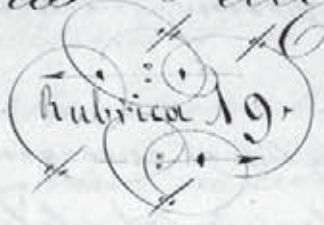 Rubrica 19.